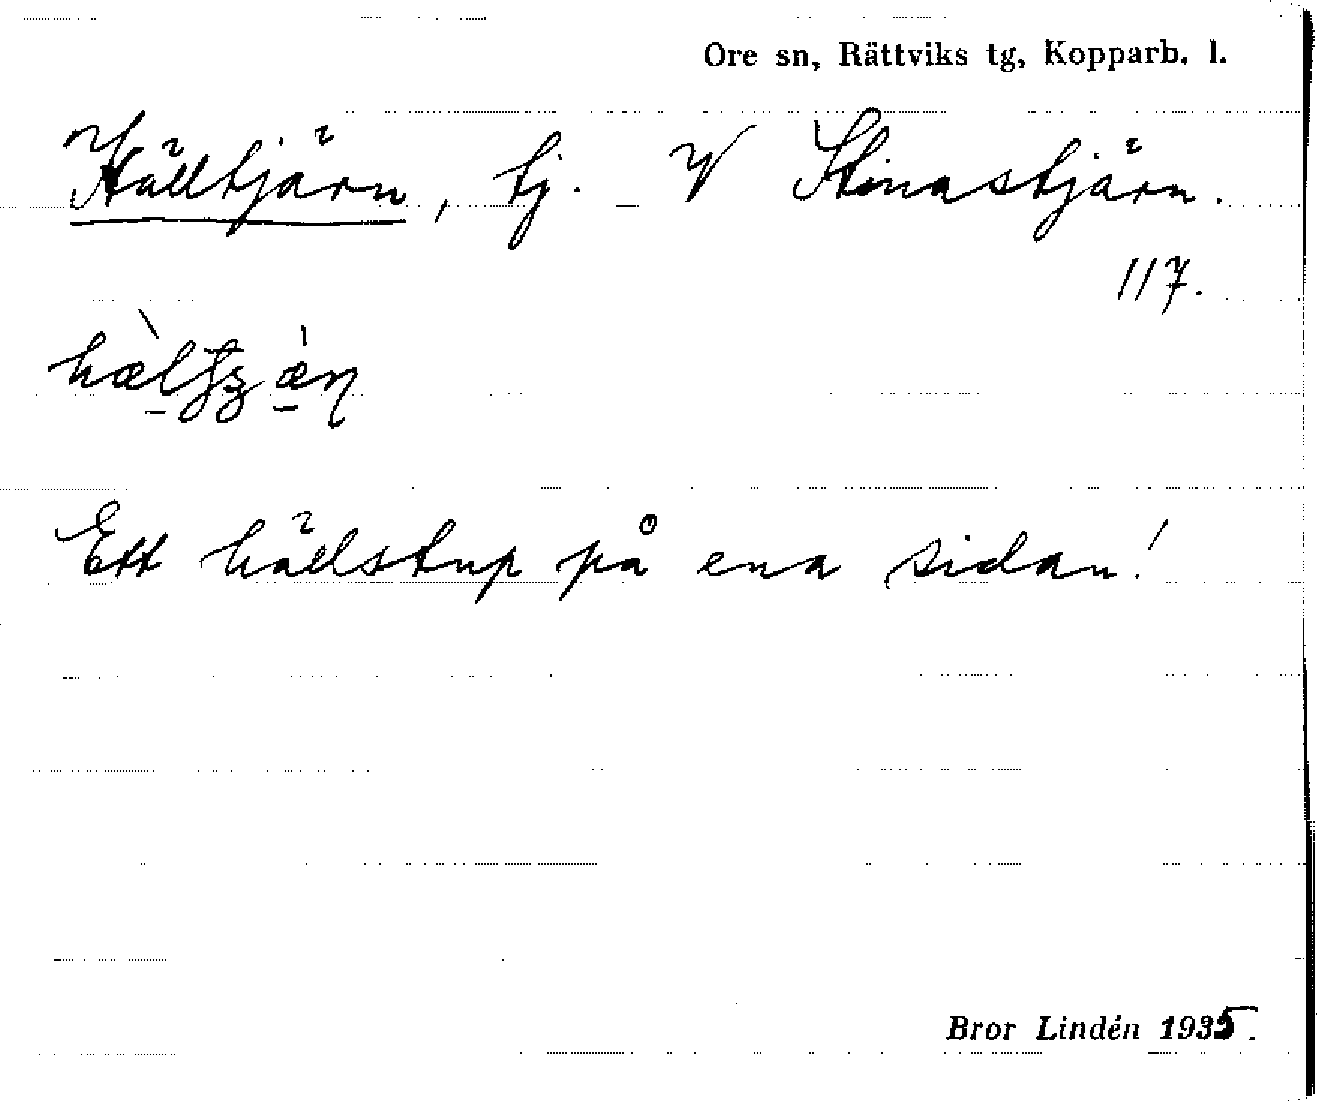 Ore sn, Rättviks tg, Kopparb. l.
Hälltjärn, tj. V Stinastjärn.
117.
Ett hällstup på ena sidan!
Bror Lindén 1935.